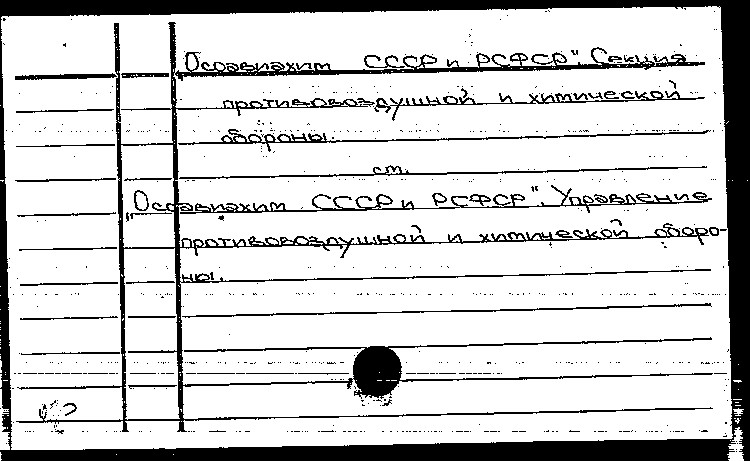 "Осоавиахим СССР и РСФСР". Секция
противовоздушной и химической
обороны.
см.
"Осоавиахим СССР и РСФСР". Управление
противовоздушной и химической оборо-
ны.